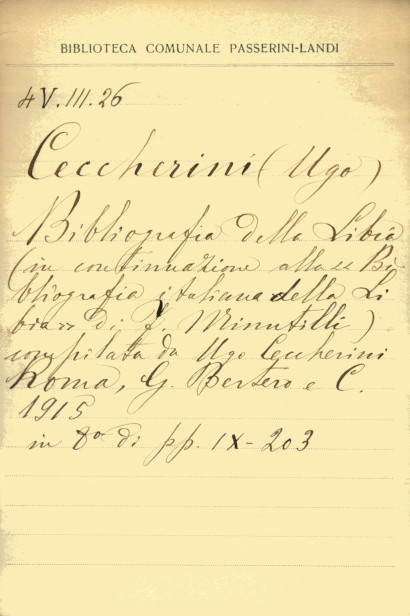 BIBLIOTECA COMUNALE PASSERINI-LANDI
4 V. III. 26
Ceccherini (Ugo)
Bibliografia della Libia
(in continuazione alla « Bi-
bliografia italiana della Li
bia » di F. Minutilli)
compilata da Ugo Ceccherini
Roma, G. Bertero e C.
1915
in 8° di pp. IX-203